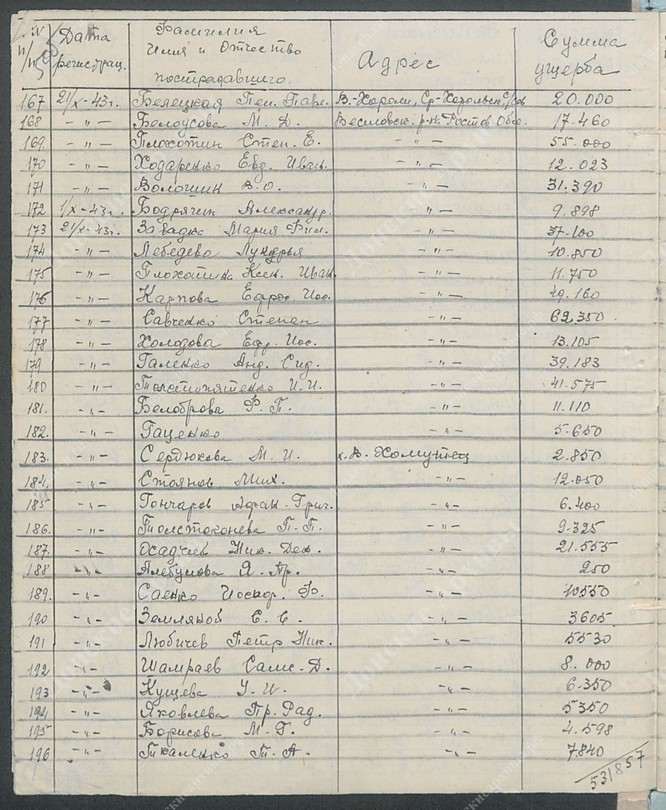 N п/п Дата регистрац. Фамилия Имя и Отчество пострадавшего. Адрес Сумма ущерба
167 21/X-43г. Белецкая Пел. Павл. В.-Хороли, Ср-Хорольск с/сов 20.000
168 -"- Белоусова М. Д. Веселовск. р-н. Ростов Обл. 17.460
169. -"- Плохотин Степ. Е. -"- 55.000
170 -"- Ходаренко Евд. Иван. -"- 12.023
171 -"- Волошин В.О. -"- 31.390
172 1/X-43г. Бодрягин Александр. -"- 9.898
173 21/X-43г. Завадко Мария Фил. -"- 37.100
174 -"- Лебедева Лукерья -"- 10.850
175 -"- Плохотина Ксен. Иван. -"- 11.750
176 -"- Карпова Ефрос. Иос. -"- 49.160
177 -"- Савченко Степан -"- 62.350
178 -"- Холодова Ефр. Иос. -"- 13.105
179 -"- Галенко Анд. Сид. -"- 39.183
180 -"- Толстопятенко И.И. -"- 41.575
181. -"- Белоброва Ф. П. -"- 11.110
182. -"- Гаценко -"- 5.650
183. -"- Сердюкова М. И. х. В. Хомутец 2.850
184. -"- Стоянов Мих. -"- 12.050
185 -"- Гончаров Афан. Григ. -"- 6.400
186. -"- Толстоконева П. П. -"- 9.325
187. -"- Осадчев Ник. Дем. -"- 21.555
188 -"- Я. Пр. -"- 250
189. -"- Саенко Ф. -"- 10550
190 -"- Земляной Е. Е. -"- 3605
191 -"- Любичев Петр Ник. -"- 5530
192 -"- Шамраев Самс. Д. -"- 8.000
193 -"- Кущева У. И. -"- 6.350
194 -"- Яковлева Пр. Рад. -"- 5350
195 -"- Борисова М. Г. -"- 4.598
196 -"- Ткаленко Т. А. -"- 7840
531857